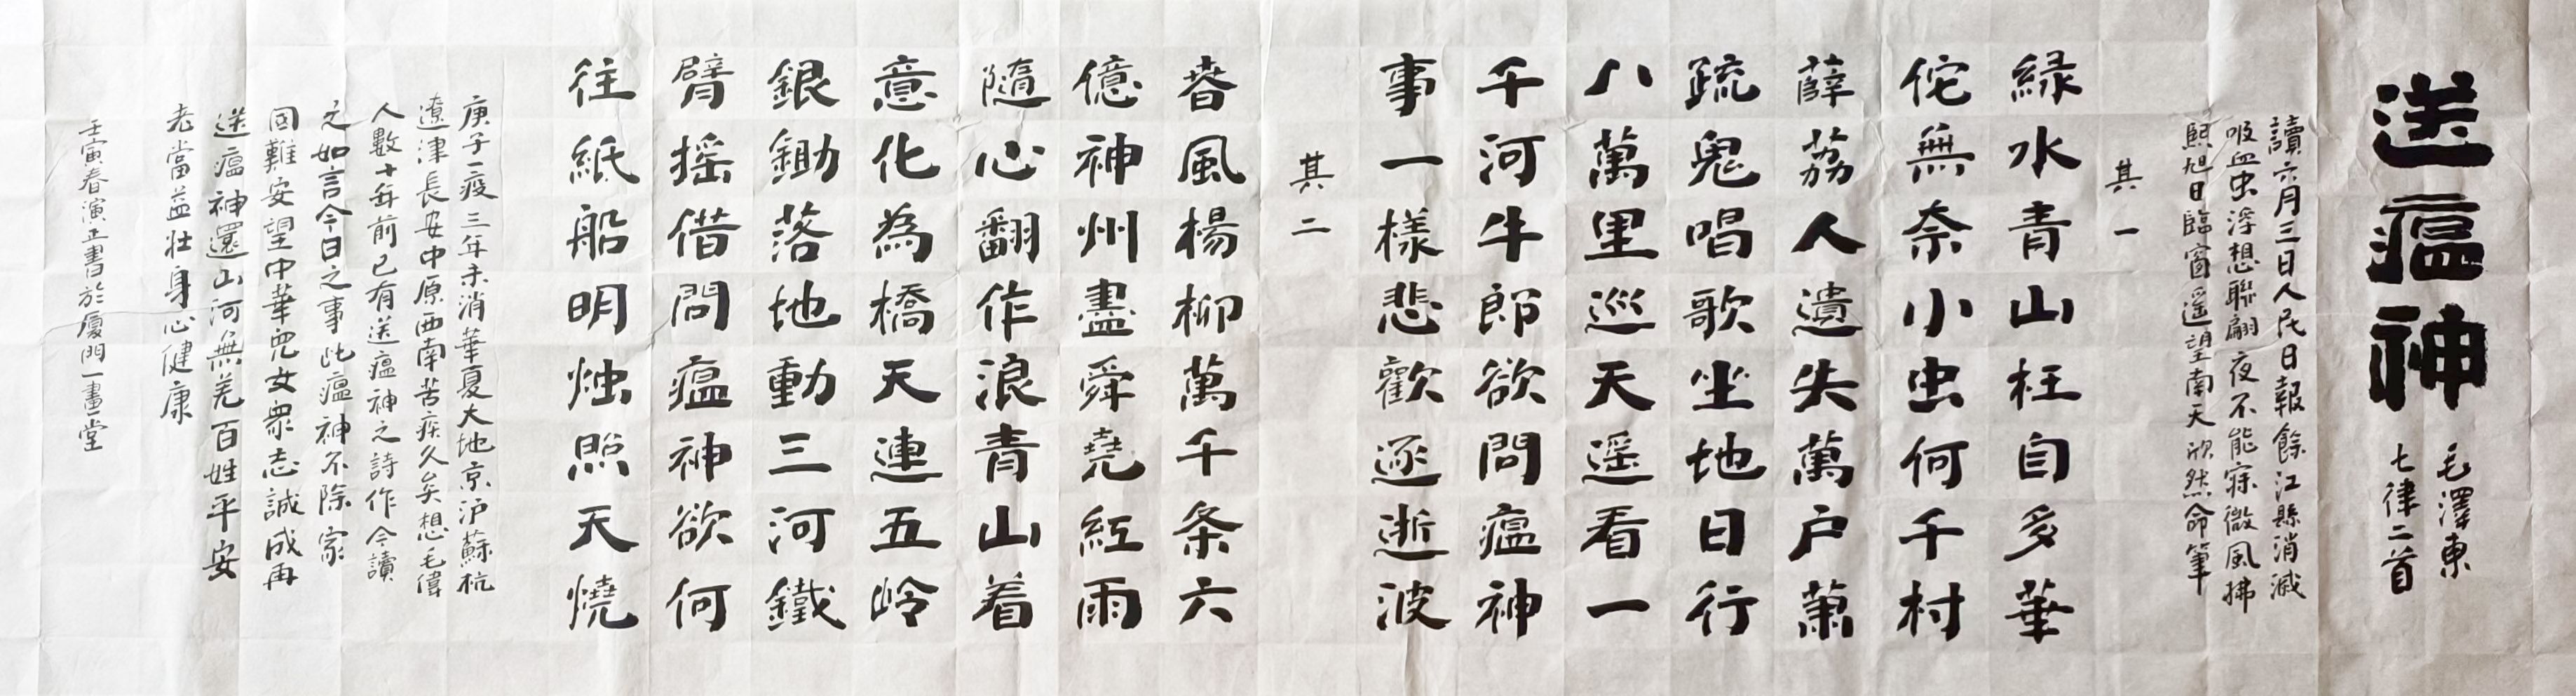 送瘟神
毛澤東
七律二首
讀六月三日人民日報餘江縣消滅
吸血虫浮想聯翩夜不能寐微風拂
熙旭日臨窗遥望南天欣然命筆
其一
緑水青山枉自多華
佗無奈小虫何千村
薜荔人遺失萬户蕭
疏鬼唱歌坐地日行
八萬里巡天遥看一
千河牛郎欲問瘟神
事一樣悲歡逐逝波
其二
春風楊柳萬千条六
億神州盡舜堯紅雨
隨心翻作浪青山着
意化為橋天連五岭
銀鋤落地動三河鐵
臂摇借問瘟神欲何
往紙船明烛照天燒
庚子一疫三年未消華夏大地京沪蘇杭
遼津長安中原西南苦疾久矣想毛偉
人數十年前已有送瘟神之詩作今讀
之如言今日之事此瘟神不除家
國難安望中華兒女眾志誠成再
送瘟神還山河無恙百姓平安
老當益壯身心健康
壬寅春演正書於厦門一畫堂